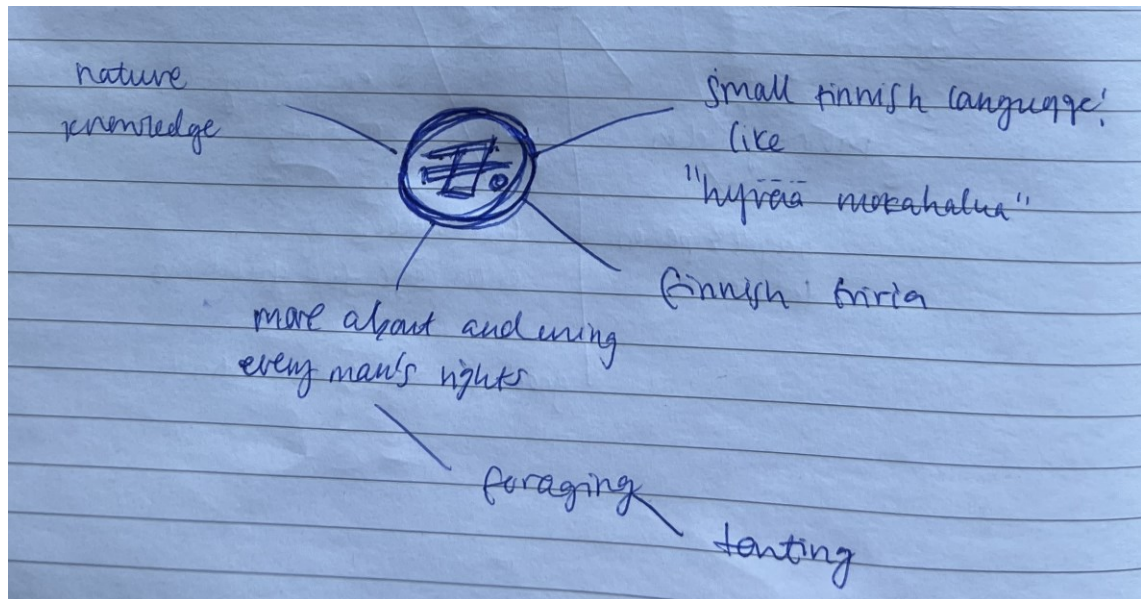 nature
knowledge
small finnish language!
like
"hyvää mokahalua"
finnish trivia
more about and using
every man's rights
foraging
tenting